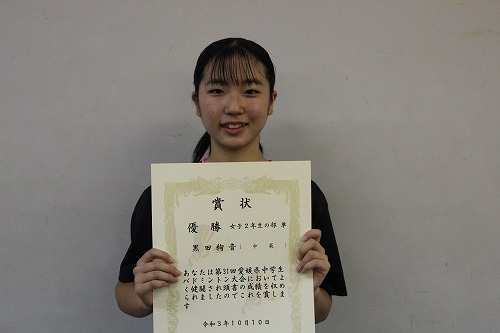 賞状
優勝 女子2年生の部 単
黒田絢音（中萩）
あなたは第31回愛媛県中学生
バドミントン大会において
く健闘され頭書の成績を収め
られましたのでこれを賞しま
す
令和3年10月10日